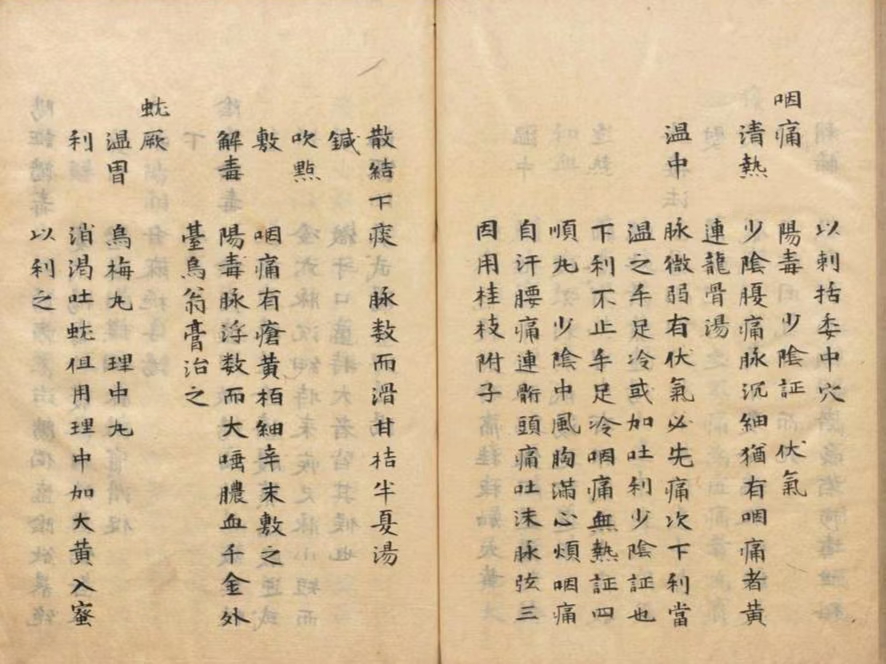 以刺括委中穴
咽痛 陽毒 少陰証 伏氣
清熱 少陰腹痛脉沉細猶有咽痛者黄
連龍骨湯
温中 脉微弱有伏氣必先痛次下利當
温之手足冷或加吐利少陰証也
下利不止手足冷咽痛無熱証四
順丸 少陰中風胸滿心煩咽痛
自汗腰痛連䯒頭痛吐沫脉弦三
因用桂枝附子
散結下痰 脉数而滑甘桔半夏湯
鍼
吹㸃
敷 咽痛有瘡黄栢細辛末敷之
解毒 陽毒脉浮数而大唾膿血千金外
臺烏翁膏治之
蚘厥
温胃 烏梅丸理中丸
利 消渴吐蚘但用理中加大黄入蜜
以利之